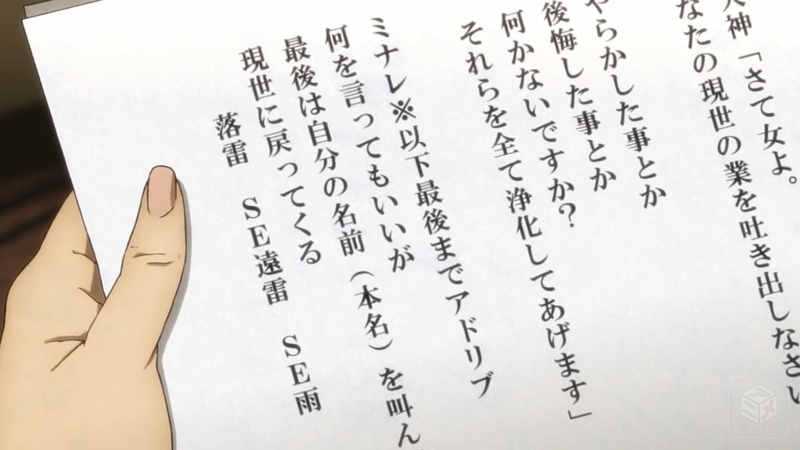 神「さて女よ。
なたの現世の業を吐き出しなさい
やらかした事とか
後悔した事とか
何かないですか？
それらを全て浄化してあげます」
ミナレ※以下最後までアドリブ
何を言ってもいいが
最後は自分の名前（本名）を叫ん
現世に戻ってくる
落雷　ＳＥ遠雷　ＳＥ雨